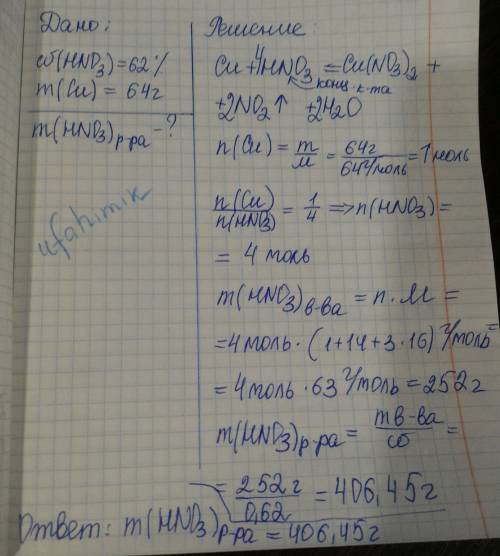 Дано:
ω(HNO₃)=62%
m(Cu) = 64г
m(HNO₃)р-ра-?
ufahimik
Решение:
Cu+4HNO₃=Cu(NO₃)₂+
конц. к-та
+2NO₂↑ +2H₂O
n(Cu) = m/M = 64г/64г/моль = 1 моль
n(Cu)/n(HNO₃) = 1/4 ⇒ n(HNO₃)=
= 4 моль
m(HNO₃)в-ва = n·M =
=4моль·(1+14+3·16) г/моль=
=4моль·63 г/моль=252г
m(HNO₃)р-ра = mв-ва/ω =
= 252г/0,62 = 406,45г
Ответ: m(HNO₃)р-ра=406,45г